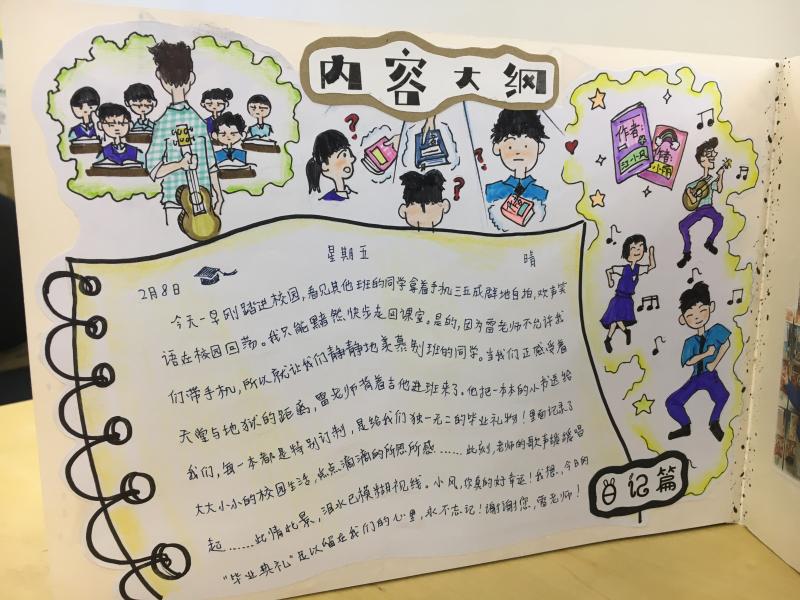 内容大纲
作者:
小风
作者:
小雨
2月8日
星期五
晴
今天一早刚踏进校园，看见其他班的同学拿着手机三五成群地自拍，欢声笑
语在校园回荡。我只能黯然快步走回课室。是的，因为雷老师不允许我
们带手机，所以就让我们静静地羡慕别班的同学。当我们正感受着
天堂与地狱的距离，雷老师背着吉他进班来了。他把一本本的小书送给
我们，每一本都是特别订制，是给我们独一无二的毕业礼物！里面记录了
大大小小的校园生活，点点滴滴的所思所感……此刻，老师的歌声缓缓唱
起……此情此景，泪水已模糊视线。小风，你真的好幸运！我想，今日的
“毕业典礼”足以留在我们的心里，永不忘记！谢谢您，雷老师！
日记篇